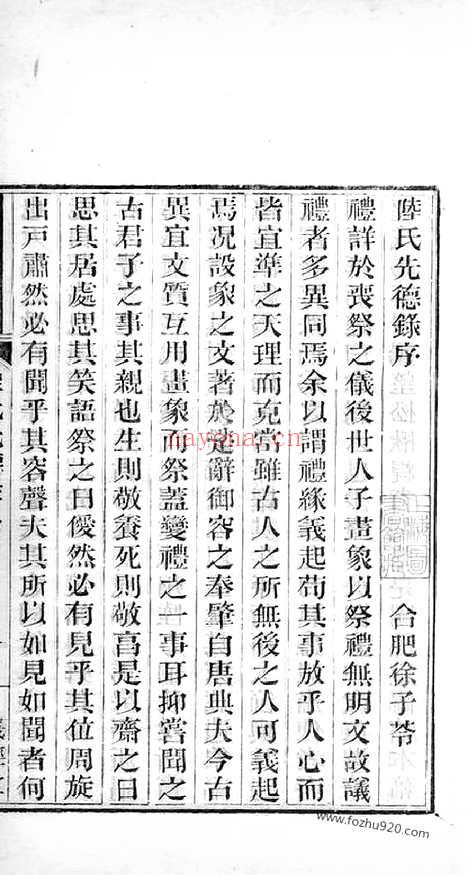 陸氏先德錄序
合肥徐子苓
禮詳於喪祭之儀後世人子畫象以祭禮無明文故議
禮者多異同焉余以謂禮緣義起苟其事放乎人心而
皆宜準之天理而克當雖古人之所無後之人可義起
焉况設象之文著於楚辭御容之奉肇自唐典夫今古
異宜文質互用畫象而祭蓋變禮之一事耳抑嘗聞之
古君子之事其親也生則敬養死則敬享是以齋之日
思其居處思其笑語祭之日僾然必有見乎其位周旋
出戸肅然必有聞乎其容聲夫其所以如見如聞者何
nayona.cn
www.fozhu920.com